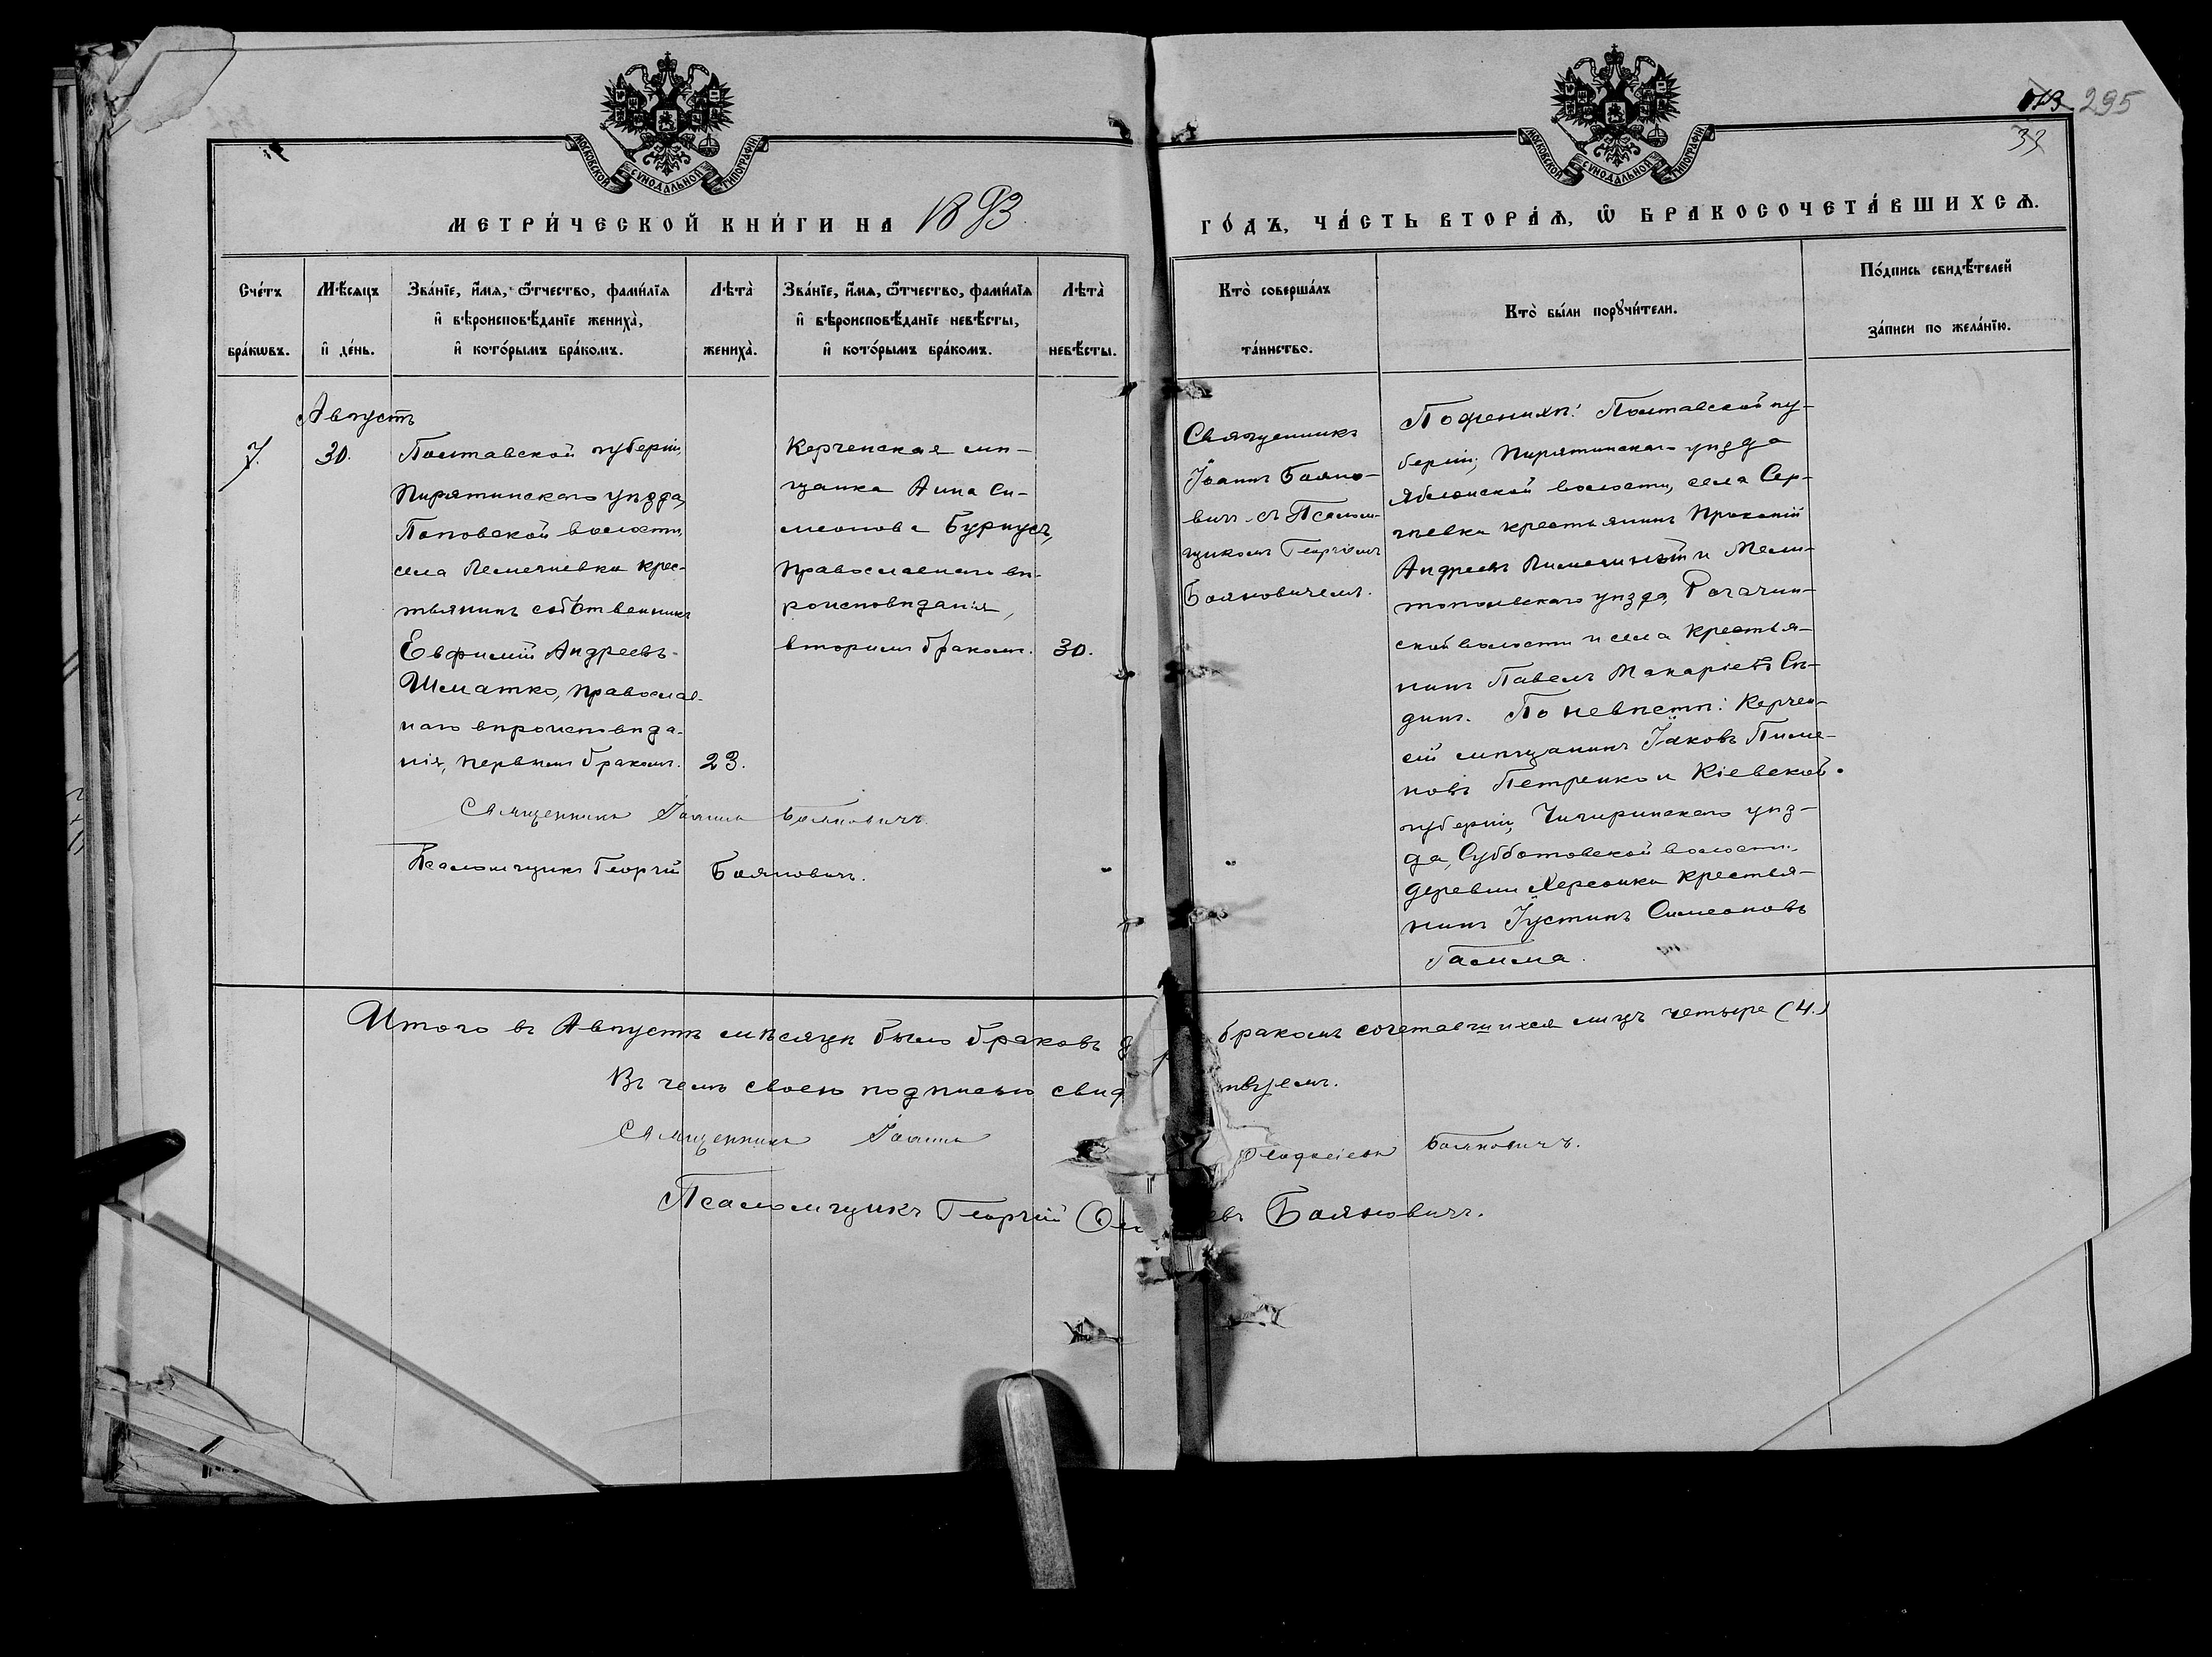 113 295
37
МОСКОВСКОЙ СУНОДАЛЬНОЙ ТИПОГРАФІИ
МОСКОВСКОЙ СУНОДАЛЬНОЙ ТИПОГРАФІИ
МЕТРИ́ЧЕСКОЙ КНИ́ГИ НА 1893
ГО́ДЪ, ЧА́СТЬ ВТОРА́Ѧ, Ѽ БРАКОСОЧЕТА́ВШИХСѦ.
Сче́тъ бра́кѡвъ.
Мѣ́сяцъ и҆ де́нь.
Зва́нїе, и҆́мѧ, ѻ҆́тчество, фами́лїѧ
и҆ вѣроисповѣ́данїе жениха̀,
и҆ кото́рымъ бра́комъ.
Лѣта̀ жениха̀.
Зва́нїе, и҆́мѧ, ѻ҆́тчество, фами́лїѧ
и҆ вѣроисповѣ́данїе невѣ́сты,
и҆ кото́рымъ бра́комъ.
Лѣта̀ невѣ́сты.
Кто̀ соверша́лъ
та́инство.
Кто̀ бы́ли порꙋчи́тели.
По́дпись свидѣ́телей
за́писи по жела́нїю.
Августъ
7. 30.
Полтавской губерніи,
Пирятинскаго уѣзда,
Поповской волости,
села крес-
тьянинъ собственникъ
Евфимій Андреевъ
Шматко, православ-
наго вѣроисповѣда-
нія, первымъ бракомъ. 23.
Керченская мѣ-
щанка Анна Си-
меонова Бурнусъ,
православнаго вѣ-
роисповѣданія,
вторымъ бракомъ. 30.
Священникъ Іоаннъ Бояновичъ.
Псаломщикъ Георгій Бояновичъ.
Священникъ
Іоаннъ Бояно-
вичъ съ Псалом-
щикомъ Георгіемъ
Бояновичемъ.
По женихѣ: Полтавской гу-
берніи, Пирятинскаго уѣзда
Яблонской волости, села Сер-
гѣевки крестьянинъ Прокопій
Андреевъ и Мели-
топольскаго уѣзда, Рогачин-
ской волости и села крестья-
нинъ Павелъ Макаріевъ Си-
динъ. По невѣстѣ: Керчен-
скій мѣщанинъ Іаковъ Пиме-
новъ Петренко и Кіевской
губерніи, Чигиринскаго уѣз-
да, Субботовской волости,
деревни Херсонки крестья-
нинъ Іустинъ Симеоновъ
Гамма.
Итого въ Августѣ мѣсяцѣ было браковъ бракомъ сочетавшихся лицъ четыре (4.)
Въ чемъ своею подписью свид тельствуемъ.
Священникъ Іоаннъ Бояновичъ.
Псаломщикъ Георгій евъ Бояновичъ.